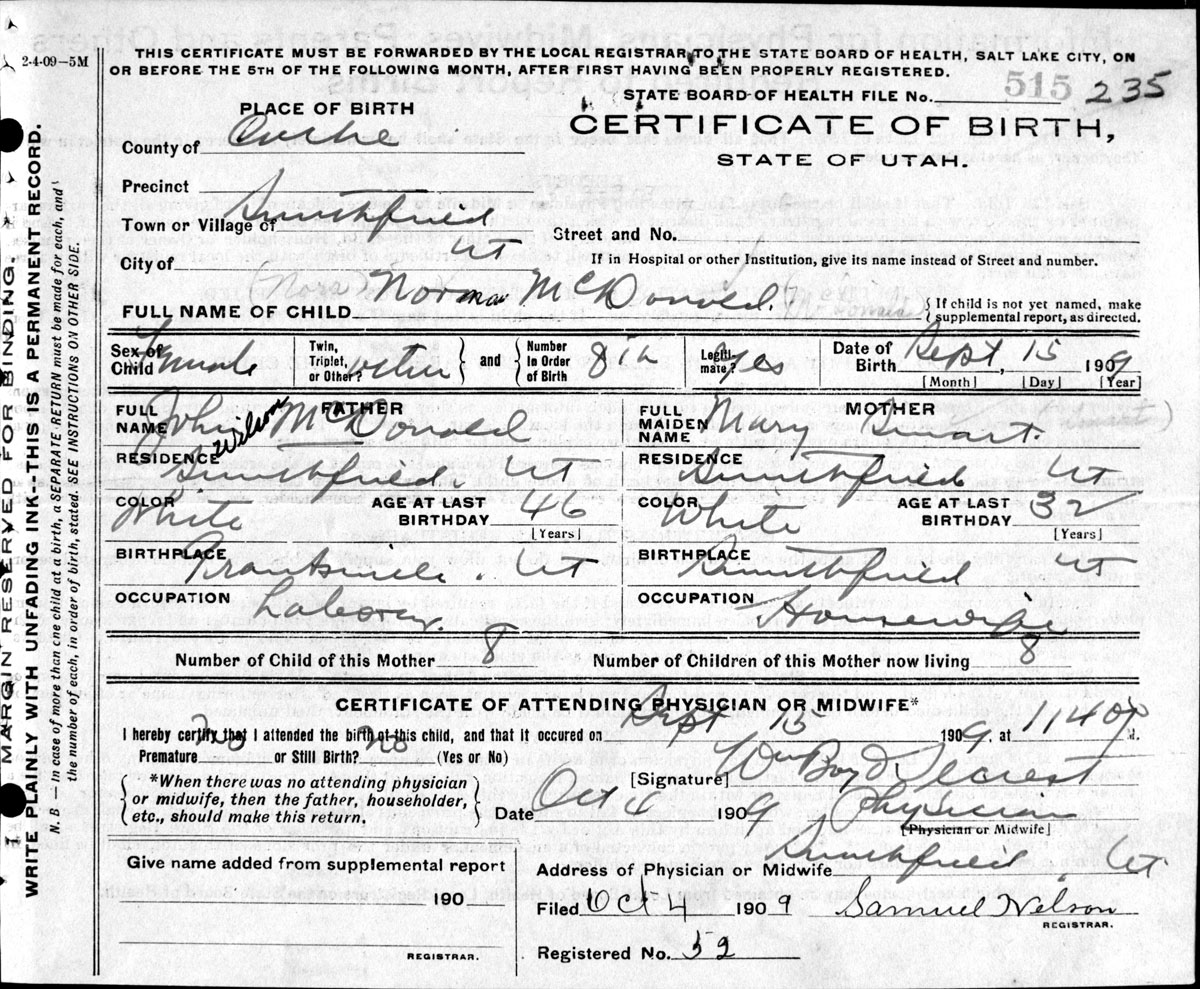 2-4-09-5M
THIS CERTIFICATE MUST BE FORWARDED BY THE LOCAL REGISTRAR TO THE STATE BOARD OF HEALTH, SALT LAKE CITY, ON
OR BEFORE THE 5TH OF THE FOLLOWING MONTH, AFTER FIRST HAVING BEEN PROPERLY REGISTERED.
STATE BOARD OF HEALTH FILE No. 515 235
PLACE OF BIRTH
CERTIFICATE OF BIRTH,
STATE OF UTAH.
County of Cache
Precinct
Town or Village of Smithfield
Street and No.
City of Ut
If in Hospital or other Institution, give its name instead of Street and number.
FULL NAME OF CHILD Norma McDonald
{ If child is not yet named, make
supplemental report, as directed.
Sex of Child Female
Twin, Triplet, or Other? other } and { Number in Order of Birth 8th
Legiti- mate? Yes
Date of Birth Sept, 15 1909
[Month] [Day] [Year]
FATHER
FULL NAME John Wilson McDonald
RESIDENCE Smithfield Ut
COLOR White
AGE AT LAST BIRTHDAY 46
[Years]
BIRTHPLACE Ut
OCCUPATION Laborer.
MOTHER
FULL MAIDEN NAME Mary
RESIDENCE Smithfield Ut
COLOR White
AGE AT LAST BIRTHDAY 32
[Years]
BIRTHPLACE Smithfield Ut
OCCUPATION Housewife
Number of Child of this Mother 8
Number of Children of this Mother now living 8
CERTIFICATE OF ATTENDING PHYSICIAN OR MIDWIFE*
I hereby certify that I attended the birth of this child, and that it occured on Sept 15 1909, at 1140 P M.
Premature No or Still Birth? No (Yes or No)
*When there was no attending physician
or midwife, then the father, householder,
etc., should make this return.
[Signature] Wm Boyd Secrest
Date Oct 4 1909 Physician
[Physician or Midwife]
Address of Physician or Midwife Smithfield, Ut.
Give name added from supplemental report
190
REGISTRAR.
Filed Oct 4 1909 Samuel Nelson
REGISTRAR.
Registered No. 52
MARGIN RESERVED FOR BINDING.
WRITE PLAINLY WITH UNFADING INK-THIS IS A PERMANENT RECORD.
N. B — In case of more than one child at a birth, a SEPARATE RETURN must be made for each, and
the number of each, in order of birth, stated. SEE INSTRUCTIONS ON OTHER SIDE.